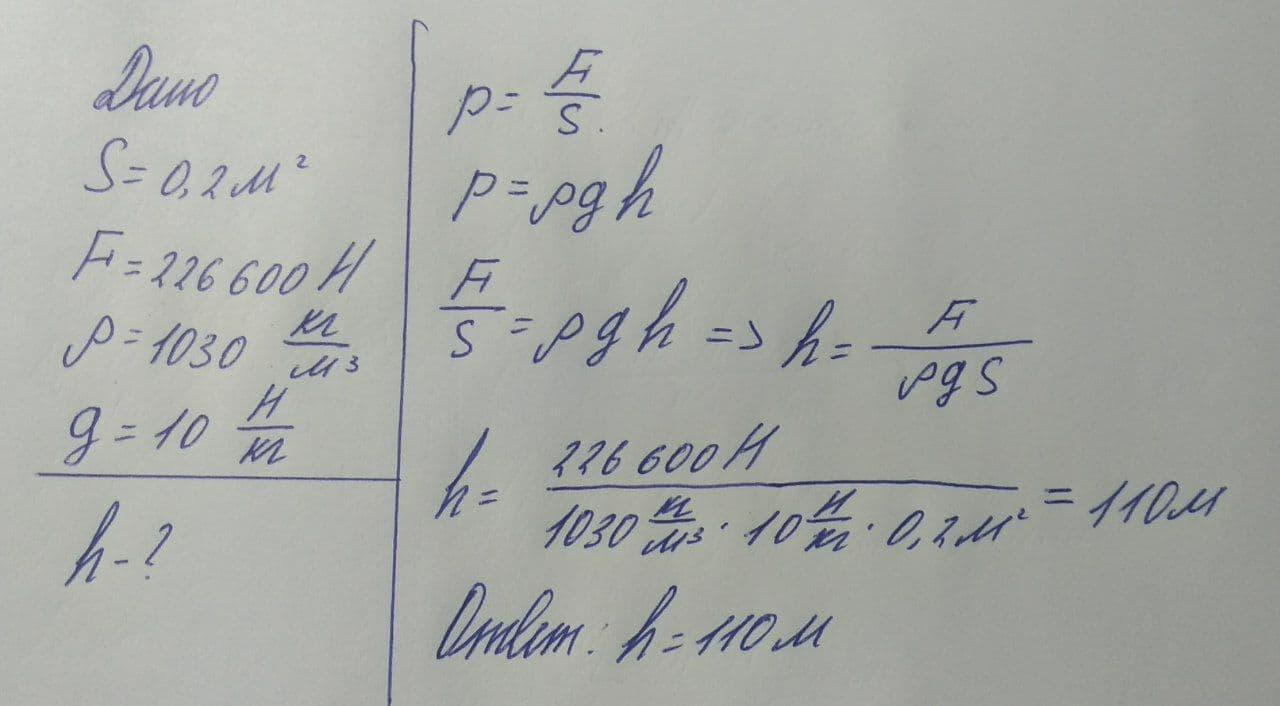 Дано
S = 0,2 м²
F = 226 600 Н
ρ = 1030 кг/м³
g = 10 Н/кг
h - ?
p = F/S.
p = ρgh
F/S = ρgh => h = F/ρgS
h = 226 600 Н / 1030 кг/м³ · 10 Н/кг · 0,2 м² = 110 м
Ответ: h = 110 м